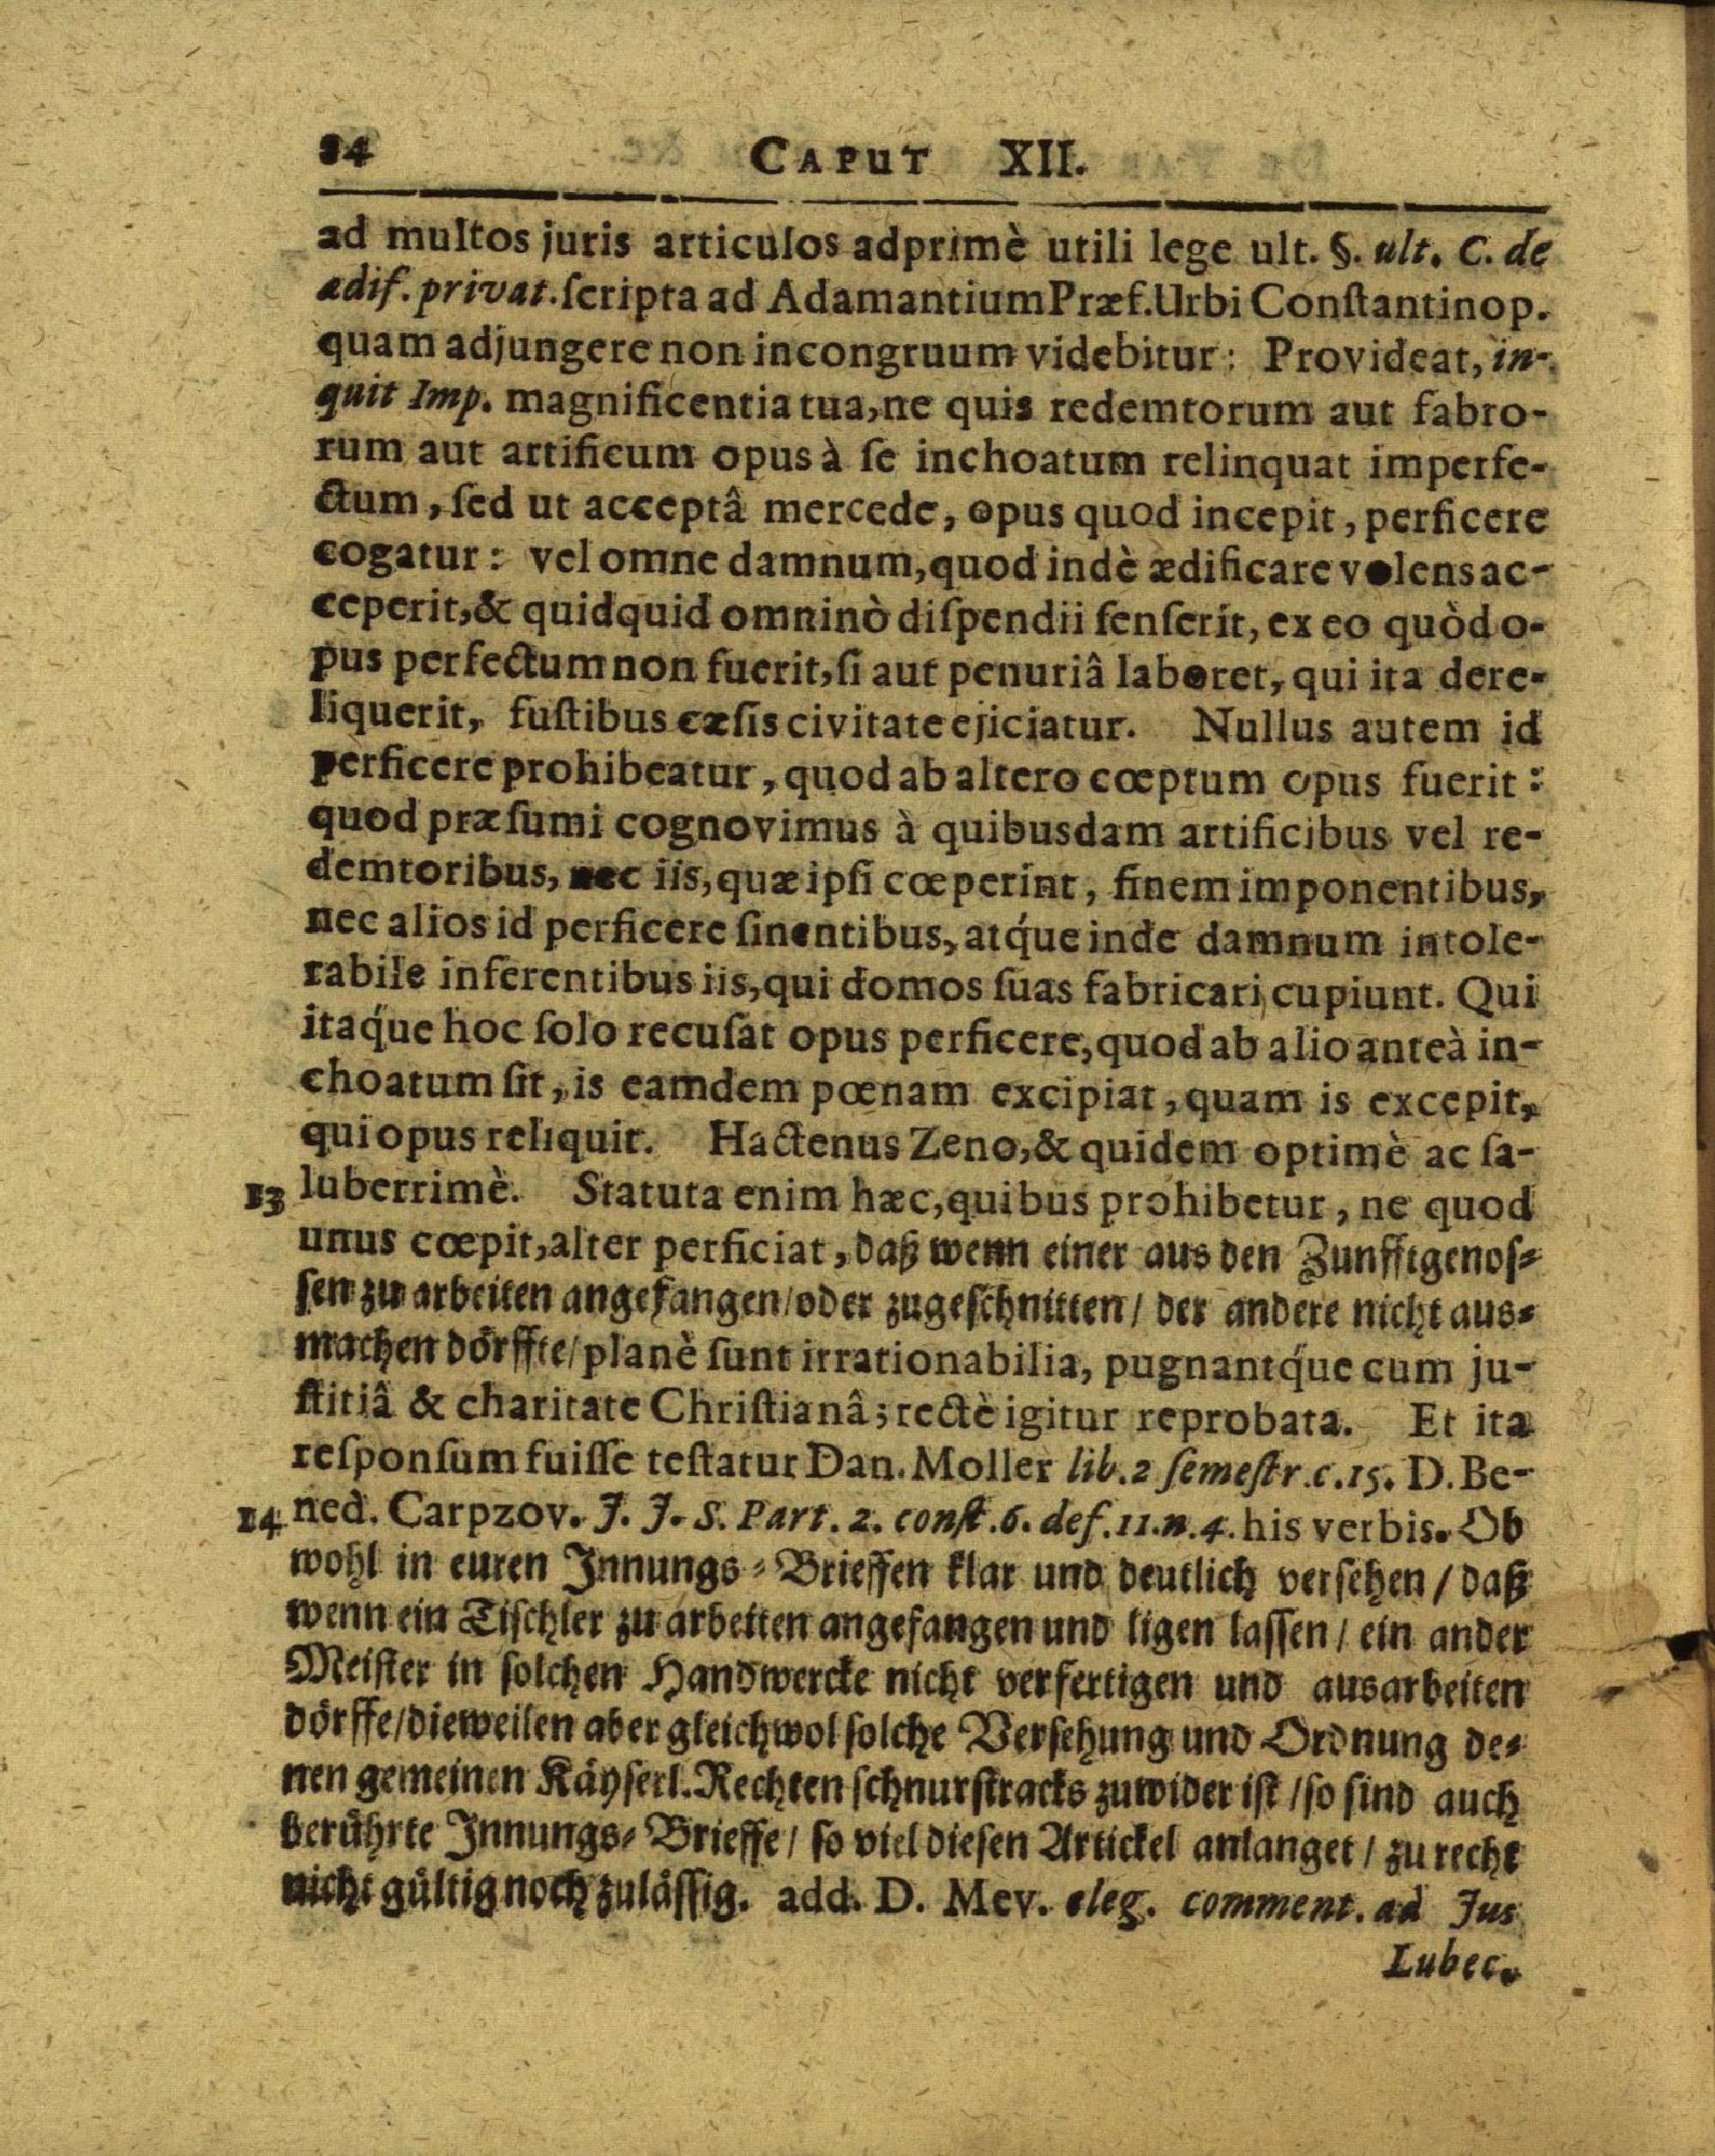 84 CAPUT XII.
ad multos juris articulos adprimè utili lege ult. §. ult. C. de
ædif. privat. ſcripta ad Adamantium Præf. Urbi Conſtantinop.
quam adjungere non incongruum videbitur: Provideat, in-
quit Imp. magnificentia tua, ne quis redemtorum aut fabro-
rum aut artificum opus à ſe inchoatum relinquat imperfe-
ctum, ſed ut acceptâ mercede, opus quod incepit, perficere
cogatur: vel omne damnum, quod indè ædificare volens ac-
ceperit, & quidquid omninò diſpendii ſenſerit, ex eo quòd o-
pus perfectum non fuerit, ſi aut penuriâ laboret, qui ita dere-
liquerit, fuſtibus cæſis civitate ejiciatur. Nullus autem id
perficere prohibeatur, quod ab altero cœptum opus fuerit:
quod præſumi cognovimus à quibusdam artificibus vel re-
demtoribus, nec iis, quæ ipſi cœperint, finem imponentibus,
nec alios id perficere ſinentibus, atq́ue inde damnum intole-
rabile inferentibus iis, qui domos ſuas fabricari cupiunt. Qui
itaq́ue hoc ſolo recuſat opus perficere, quod ab alio anteà in-
choatum ſit, is eamdem pœnam excipiat, quam is excepit,
qui opus reliquit. Hactenus Zeno, & quidem optimè ac ſa-
13 luberrimè. Statuta enim hæc, quibus prohibetur, ne quod
unus cœpit, alter perficiat, daß wenn einer aus den Zunfftgenoſ⸗
ſen zu arbeiten angefangen/oder zugeſchnitten/ der andere nicht aus⸗
machen dörffte/ planè ſunt irrationabilia, pugnantq́ue cum ju-
ſtitiâ & charitate Chriſtianâ; rectè igitur reprobata. Et ita
reſponſum fuiſſe teſtatur Dan. Moller lib. 2 ſemeſtr. c. 15. D. Be-
14 ned. Carpzov. J. J. S. Part. 2. conſt. 6. def. 11. n. 4. his verbis. Ob
wohl in euren Innungs⸗Brieffen klar und deutlich verſehen/ daß
wenn ein Tiſchler zu arbeiten angefangen und ligen laſſen/ ein ander
Meiſter in ſolchen Handwercke nicht verfertigen und ausarbeiten
dörffe/dieweilen aber gleichwol ſolche Verſehung und Ordnung de⸗
nen gemeinen Käyſerl. Rechten ſchnurſtracks zuwider iſt/ſo ſind auch
berührte Innungs⸗Brieffe/ ſo viel dieſen Artickel anlanget/ zu recht
nicht gültig noch zuläſſig. add. D. Mev. eleg. comment. ad Jus
Lubec.